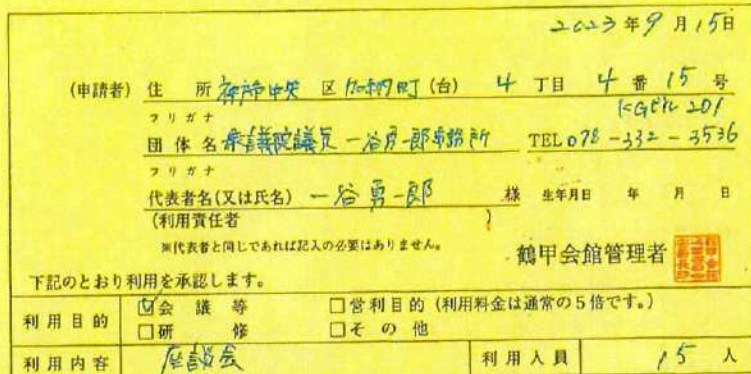 2023年9月15日
(申請者) 住所 神戸市中央区加納町(台) 4丁目4番15号
KGビル201
フリガナ
団体名 衆議院議員 一谷勇一郎事務所 TEL 078-332-3536
フリガナ
代表者名(又は氏名) 一谷勇一郎 様 生年月日 年 月 日
(利用責任者 )
※代表者と同じであれば記入の必要はありません。
鶴甲会館管理者
下記のとおり利用を承認します。
利用目的 ☑会議等 □営利目的(利用料金は通常の5倍です。)
□研修 □その他
利用内容 座談会 利用人員 15人